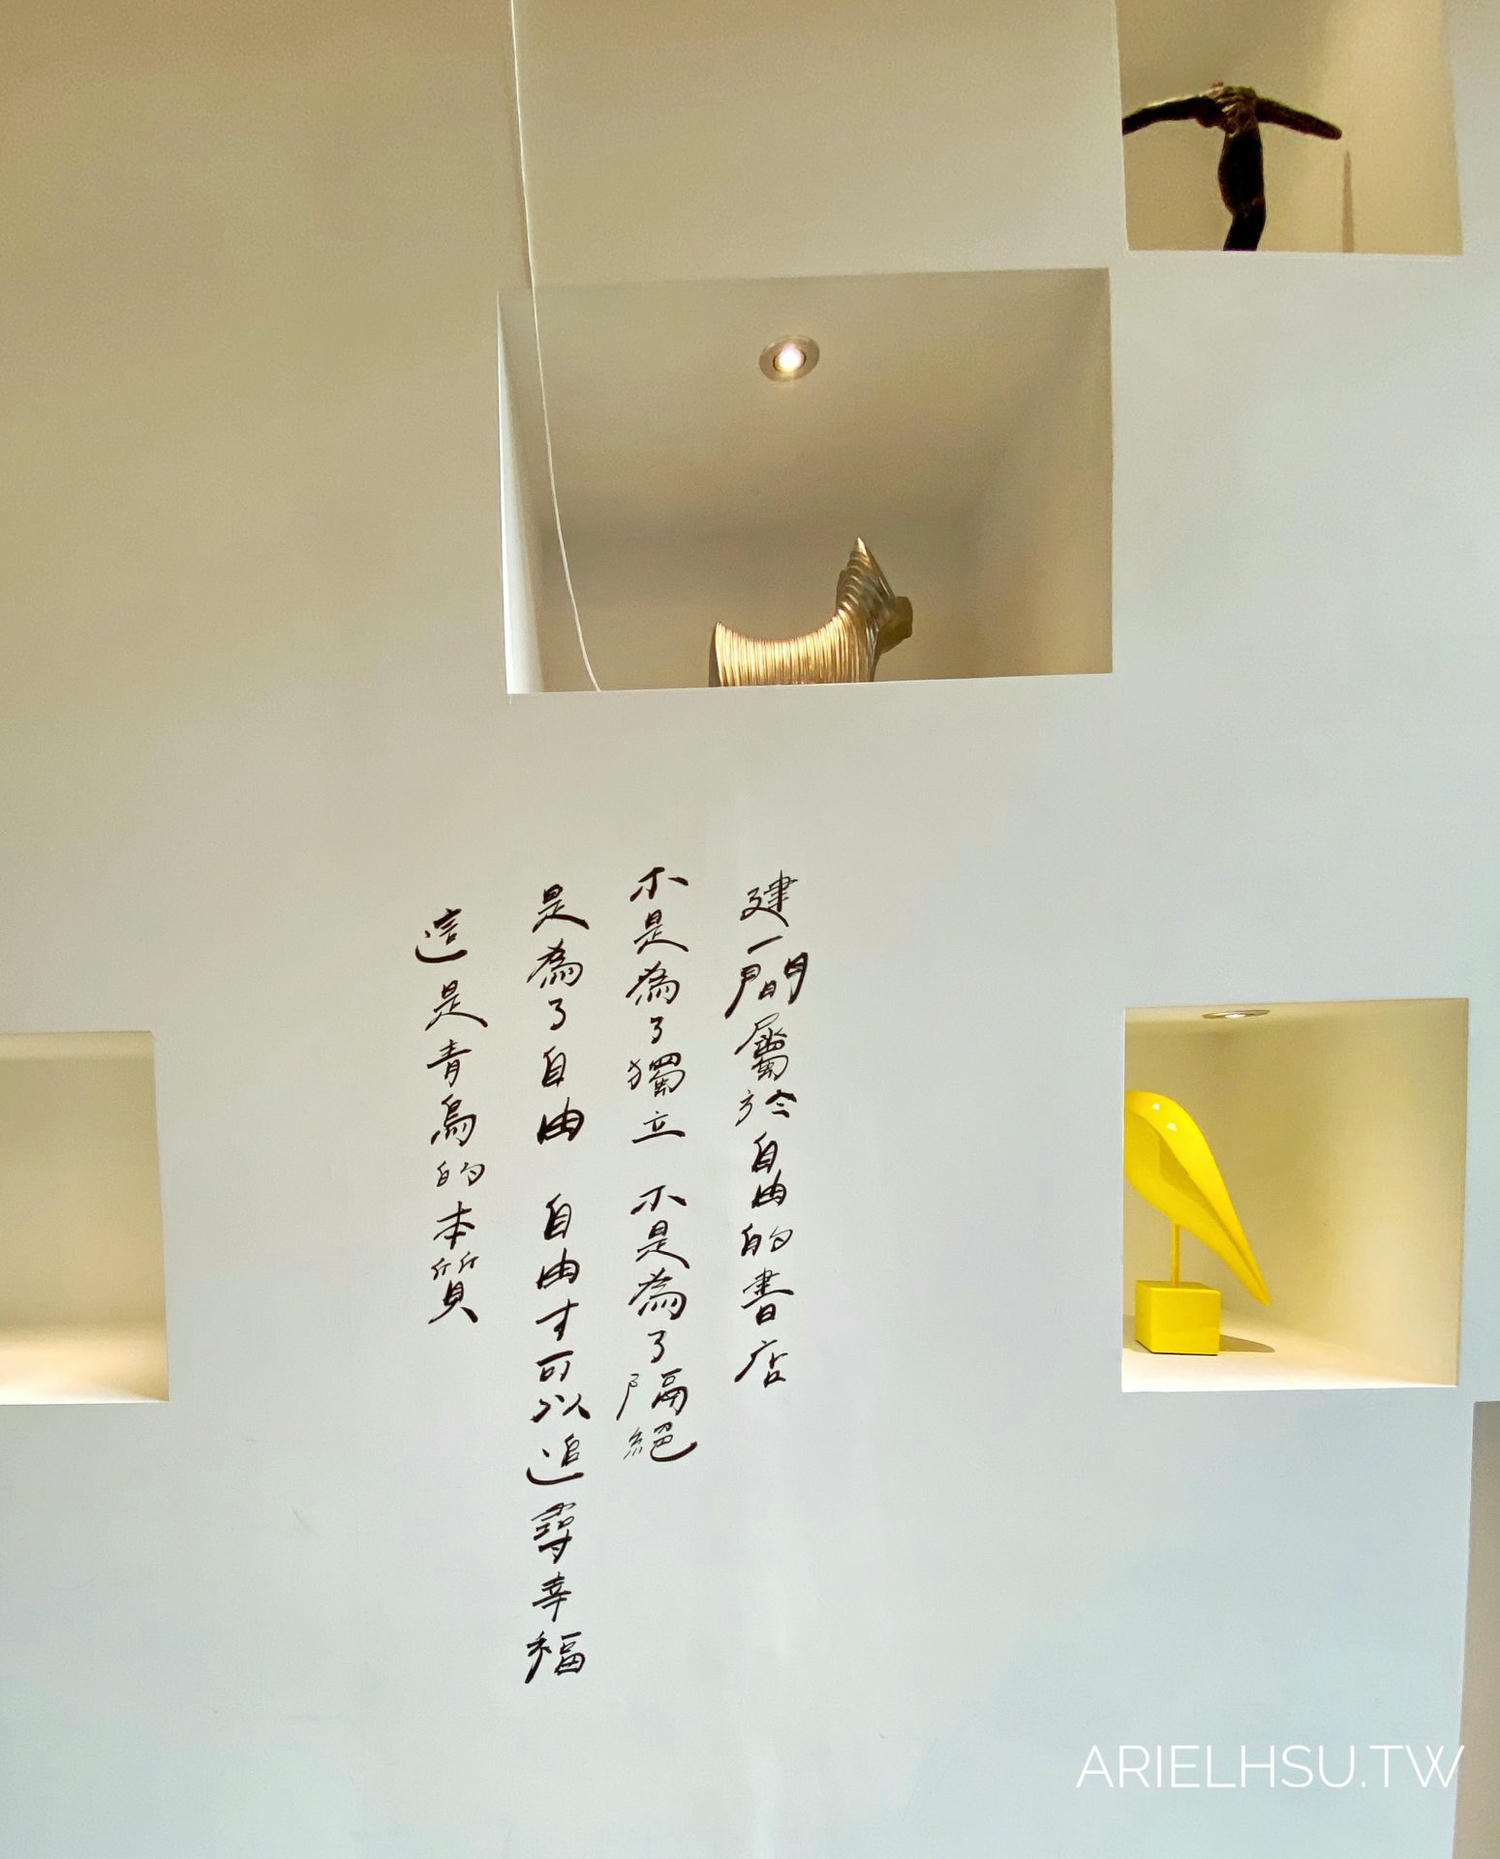 建一間屬於自由的書店
不是為了獨立 不是為了隔絕
是為了自由 自由才可以追尋幸福
這是青鳥的本質
ARIELHSU.TW